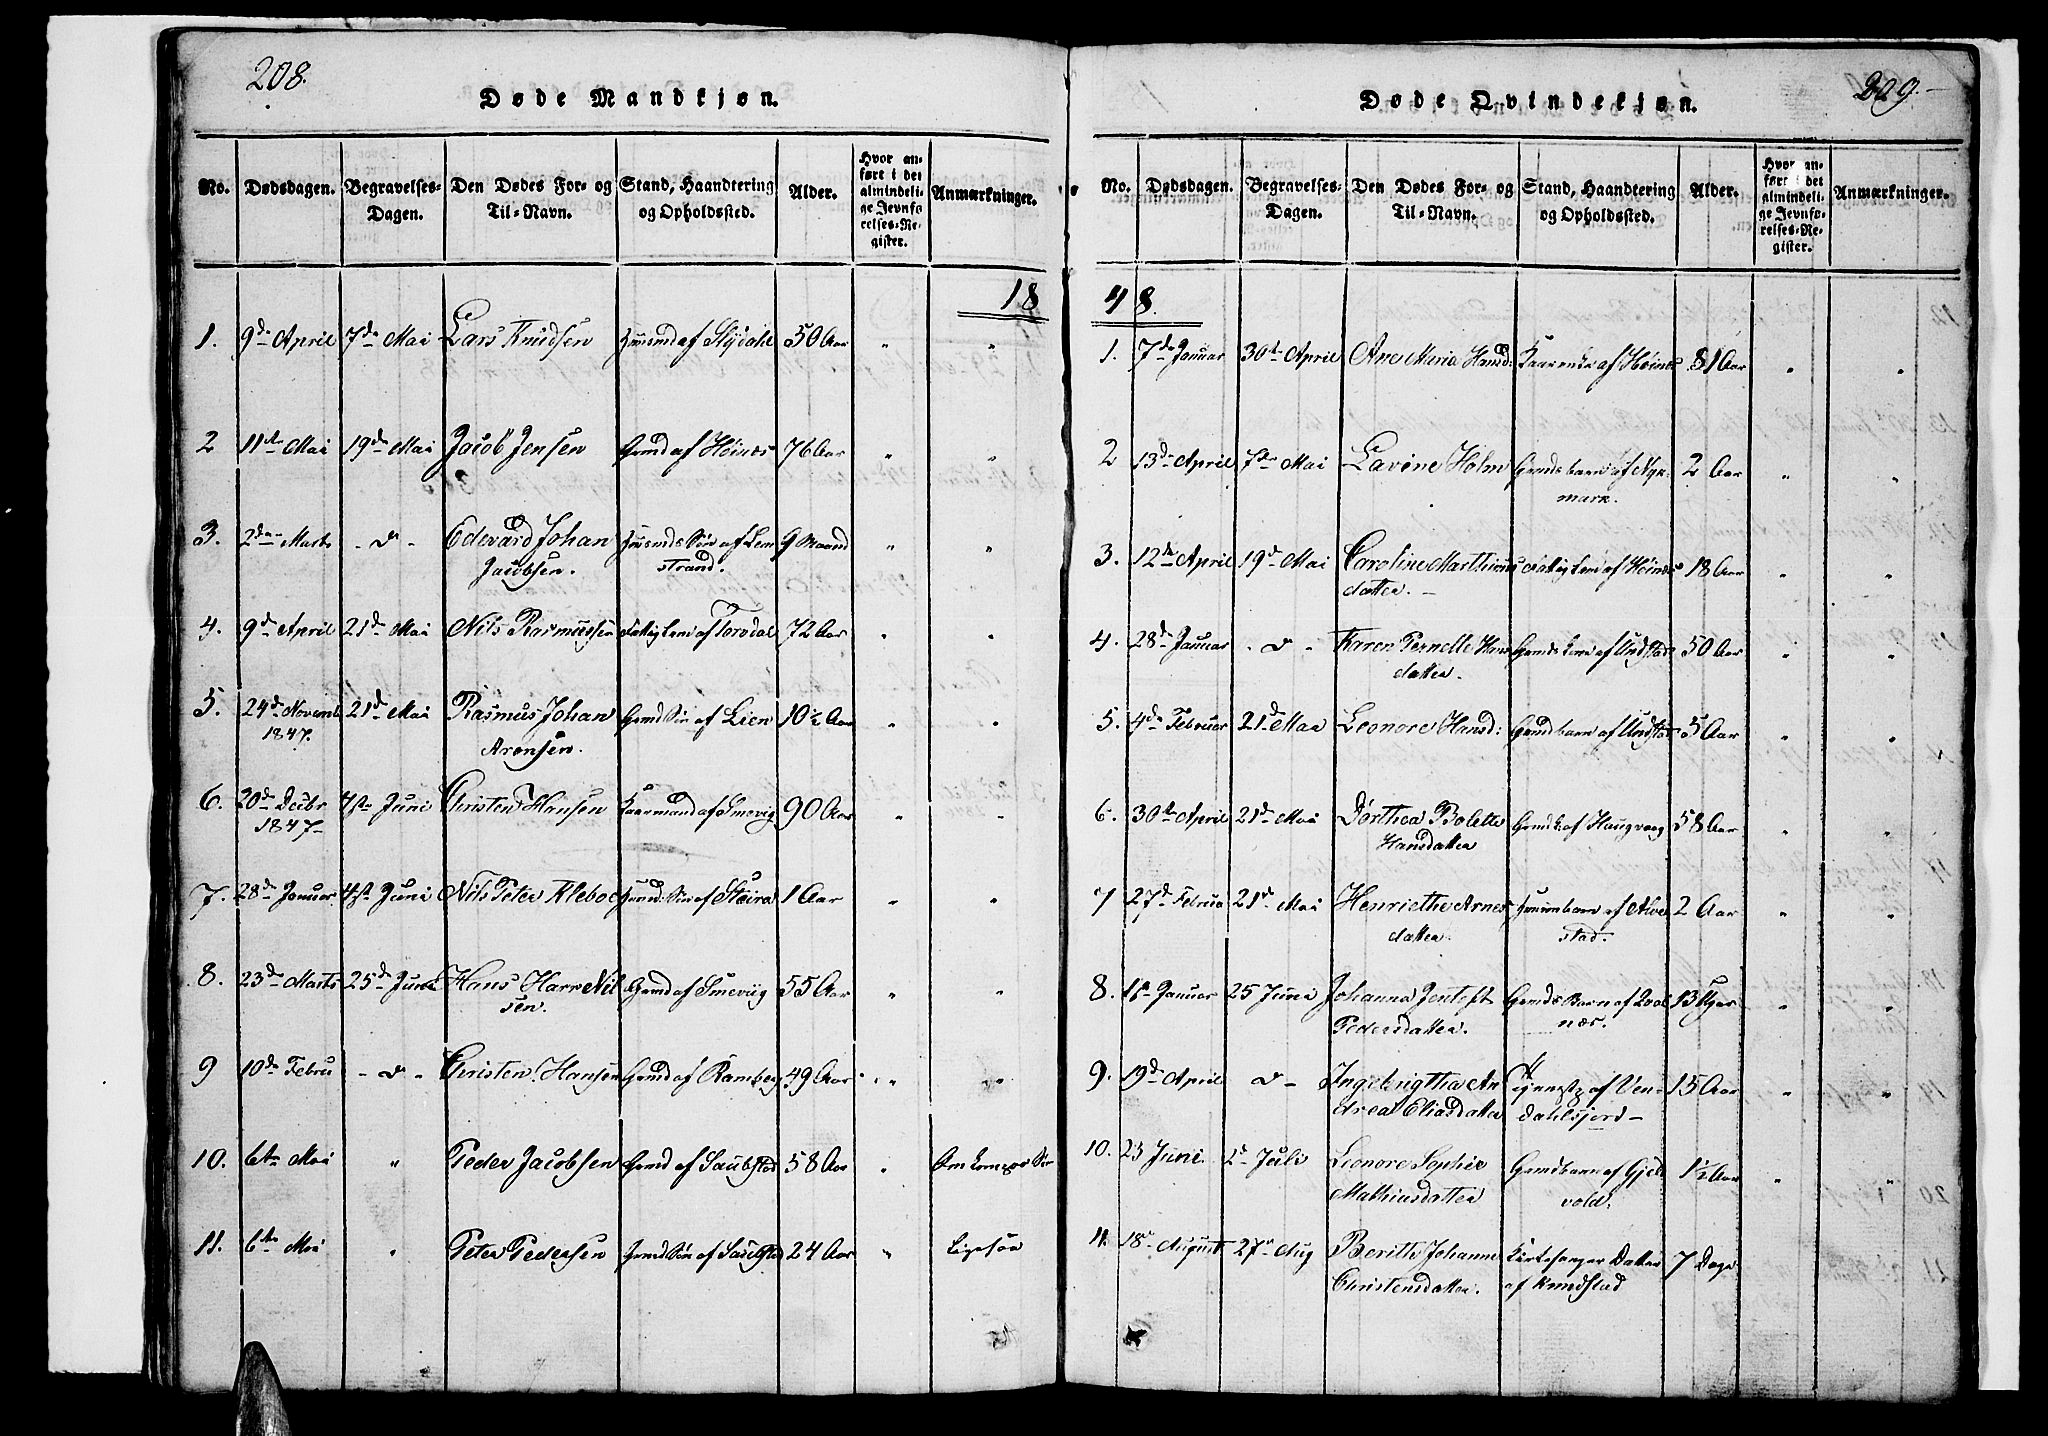 208.
Døde Mandkjøn.
No. Dødsdagen. Begravelses-Dagen. Den Dødes For- og Til-Navn. Stand, Haandtering og Opholdssted. Alder. Hvor anført i det almindelige Jevnførelses-Register. Anmærkninger.
18
1. 9de April 7de Mai Lars Knudsen Huusmd af Slydahl 50 Aar " "
2 11te Mai 19de Mai Jacob Jensen Gmd af Høines 76 Aar " "
3. 2den Marts - d - Edevard Johan Huusmds Søn af Lem 9 Maand " "
Jacobsen. strand.
4. 9de April 21de Mai Nils Rasmussen Fattiglem af Torvdal 72 Aar " "
5. 24de Novemb 21de Mai Rasmus Johan Gmd Søn af Lien 10½ Aar " "
1847. Aronsen.
6. 20de Decbr 4de Juni Christen Hansen Kaarmand af Smevig 90 Aar " "
1847-
7. 28de Januar 4de Juni Nils Peter Kleboe Huusmd Søn af Støira 1 Aar " "
8. 23de Marts 25de Juni Hans Harr Nil Gmd af Smeviig 55 Aar " "
sen.
9 10de Febru - d - Christen Hansen Gmd af Ramberg 49 Aar " "
10. 6te Mai " Peder Jacobsen Gmd af Saubstad 58 Aar " Omkom paa Søe
11. 6te Mai " Peter Pedersen Gmd Søn af Saubstad 24 Aar " Ligesaa
209-
Døde Qvindekjøn.
No. Dødsdagen. Begravelses-Dagen. Den Dødes For- og Til-Navn. Stand, Haandtering og Opholdssted. Alder. Hvor anført i det almindelige Jevnførelses-Register. Anmærkninger.
48.
1. 7de Januar 30te April Ane Maria Hansd: Kaarenke af Høines 81 Aar " "
2 13de April 7de Mai Lavine Holm Gmds barn af Nyk 2 Aar " "
mark.
3. 12te April 19de Mai Caroline Marthinus Fattiglem af Høines 18 Aar " "
datter. -
4. 28de Januar - d - Karen Pernelle Hans Gmds Kone af Undstad 50 Aar " "
datter.
5. 4de Februar 21de Mai Leonore Hansd: Gmdbarn af Undstad 5 Aar " "
6. 30te April 21de Mai Dorthea Bolette Gmdk af Haugvaag 58 Aar " "
Hansdatter
7 27de Februa 21de Mai Henriethe Arnes Huusmbarn af Alve 2 Aar " "
datter. stad.
8. 1ste Januar 25 Juni Johanna Jentoft Gmds Barn af Qval 13 Uger " "
Pedersdatter. næs.
9. 19de April - d - Ingebrigtha An Tjenestp af Ven- 15 Aar " "
drea Eliasdatter dahlsjord-
10. 23 Juni. 2de Juli Leonore Sophie Gmdbarn af Gjel 1½ Aar " "
Mathiusdatter vold.
11. 18de August 27de Aug Berith Johanne Kirkesanger Datter 7 Dage
Christensdatter. af Knudstad